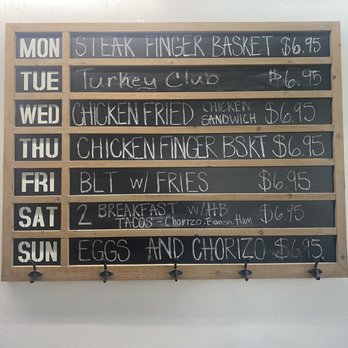 MON STEAK FINGER BASKET $6.95
TUE Turkey Club $6.95
WED CHICKEN FRIED CHICKEN SANDWICH $6.95
THU CHICKEN FINGER BSKT $6.95
FRI BLT w/ FRIES $6.95
SAT 2 BREAKFAST w/HB $6.95
TACOS - Chorizo, Bacon, Ham
SUN EGGS AND CHORIZO $6.95